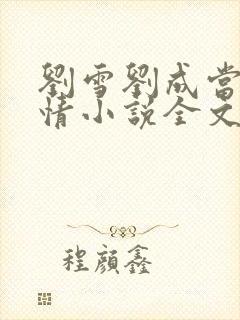 劉雪劉成當
情小說全文
程顏鑫